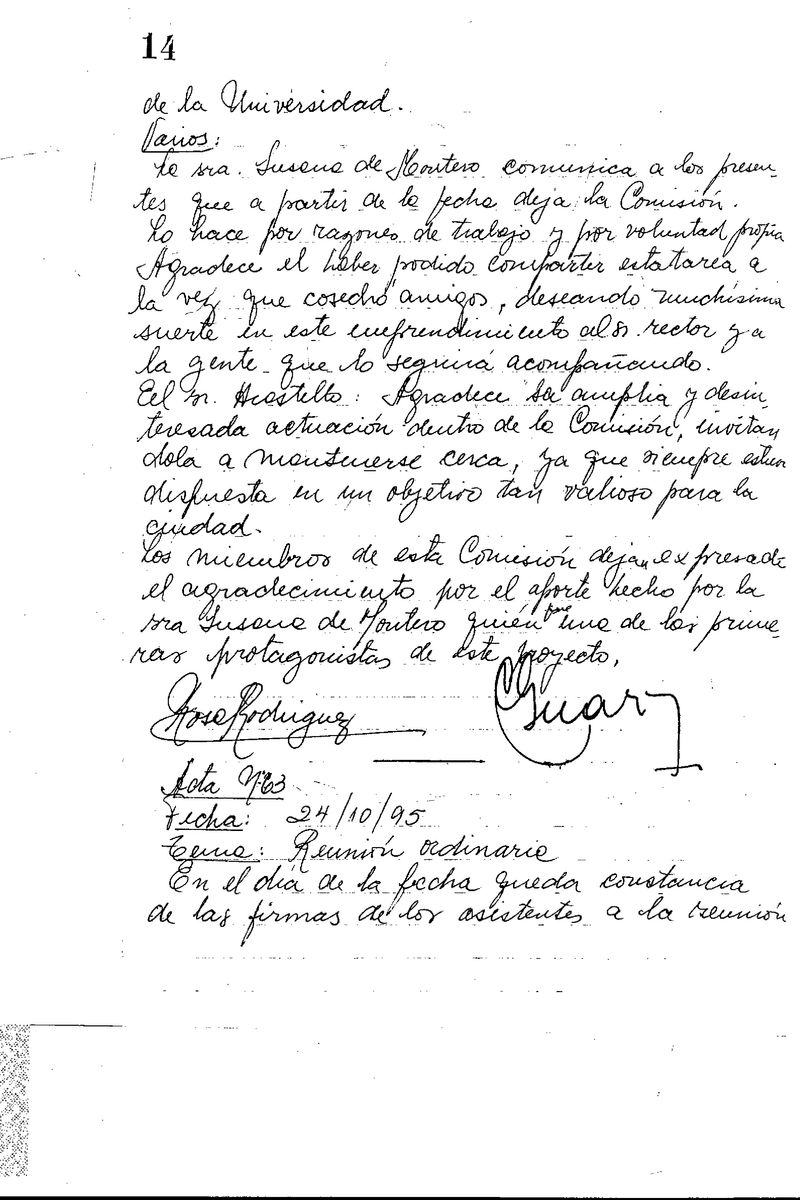 14
de la Universidad.
Varios:
La sra. Susana de Montero comunica a los presen_
tes que a partir de la fecha deja la Comisión.
Lo hace por razones de trabajo y por voluntad propia
Agradece el haber podido compartir esta tarea a
la vez que cosechó amigos, deseando muchísima
suerte en este emprendimiento al sr. rector y a
la gente que lo seguirá acompañando.
Eel sr. : Agradece su amplia y desin_
teresada actuación dentro de la Comisión, invitan
dola a mantenerse cerca, ya que siempre estuvo
dispuesta en un objetivo tan valioso para la
ciudad.
Los miembros de esta Comisión dejan expresado
el agradecimiento por el aporte hecho por la
sra Susana de Montero quién fue una de las prime_
ras protagonistas de este proyecto.
Rosa Rodriguez
Acta Nº63
Fecha: 24/10/95
Tema: Reunión ordinaria
En el día de la fecha queda constancia
de las firmas de los asistentes a la reunión